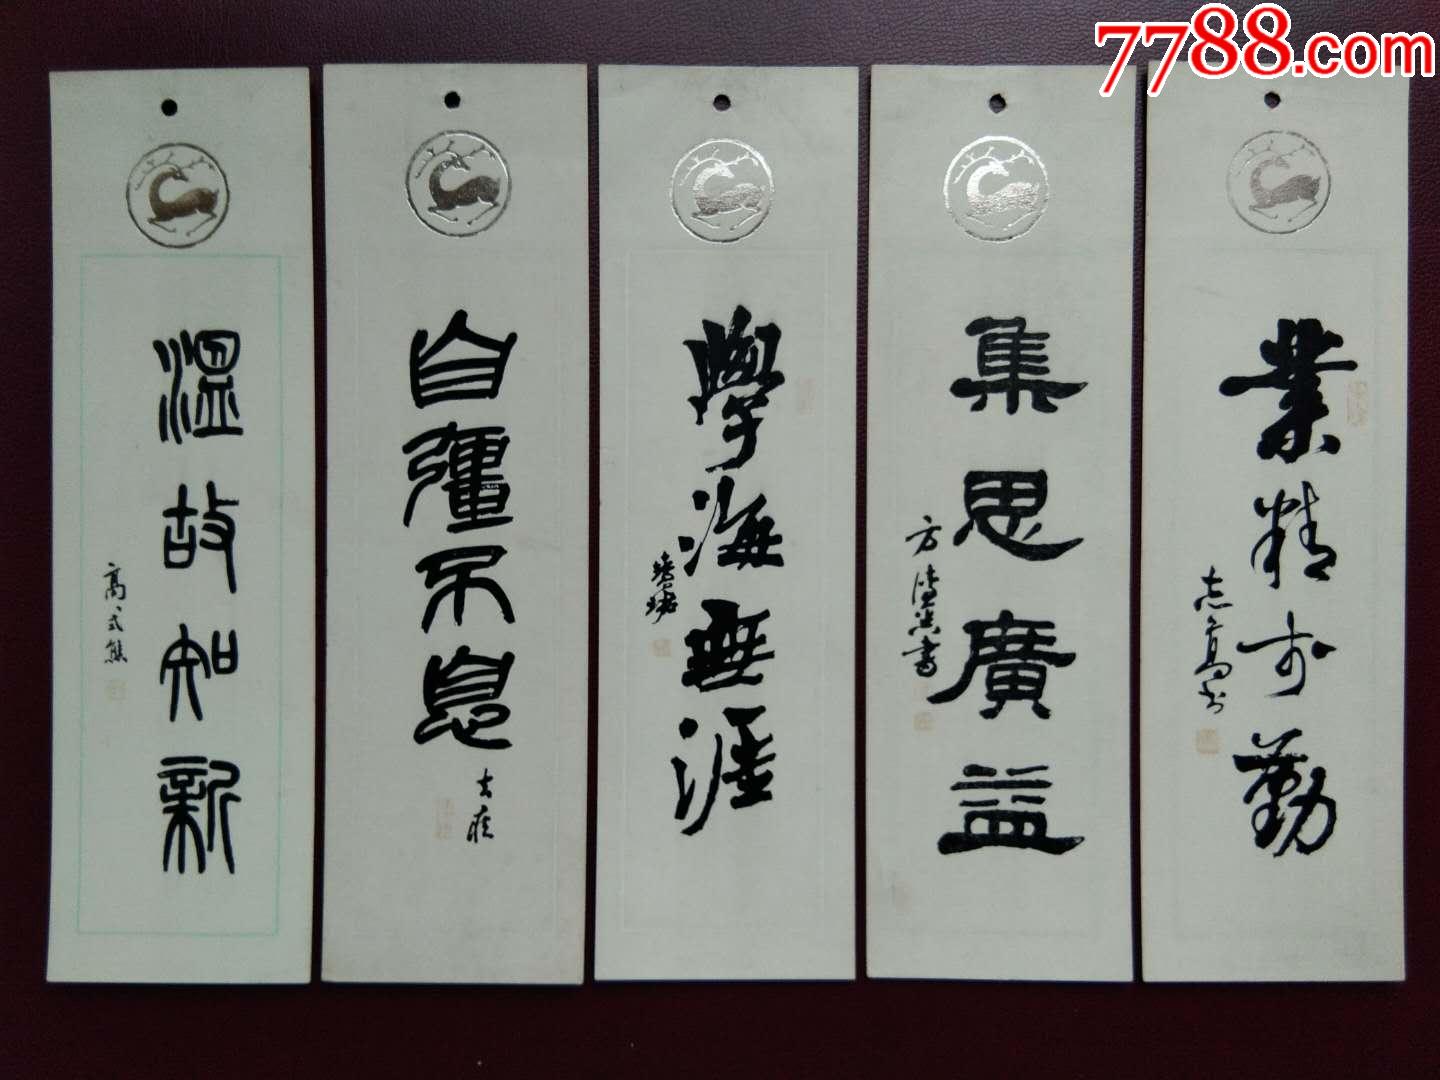 7788.com
溫故知新
高式熊
自彊不息
去疾
學海無涯
集思廣益
業精於勤
志高書